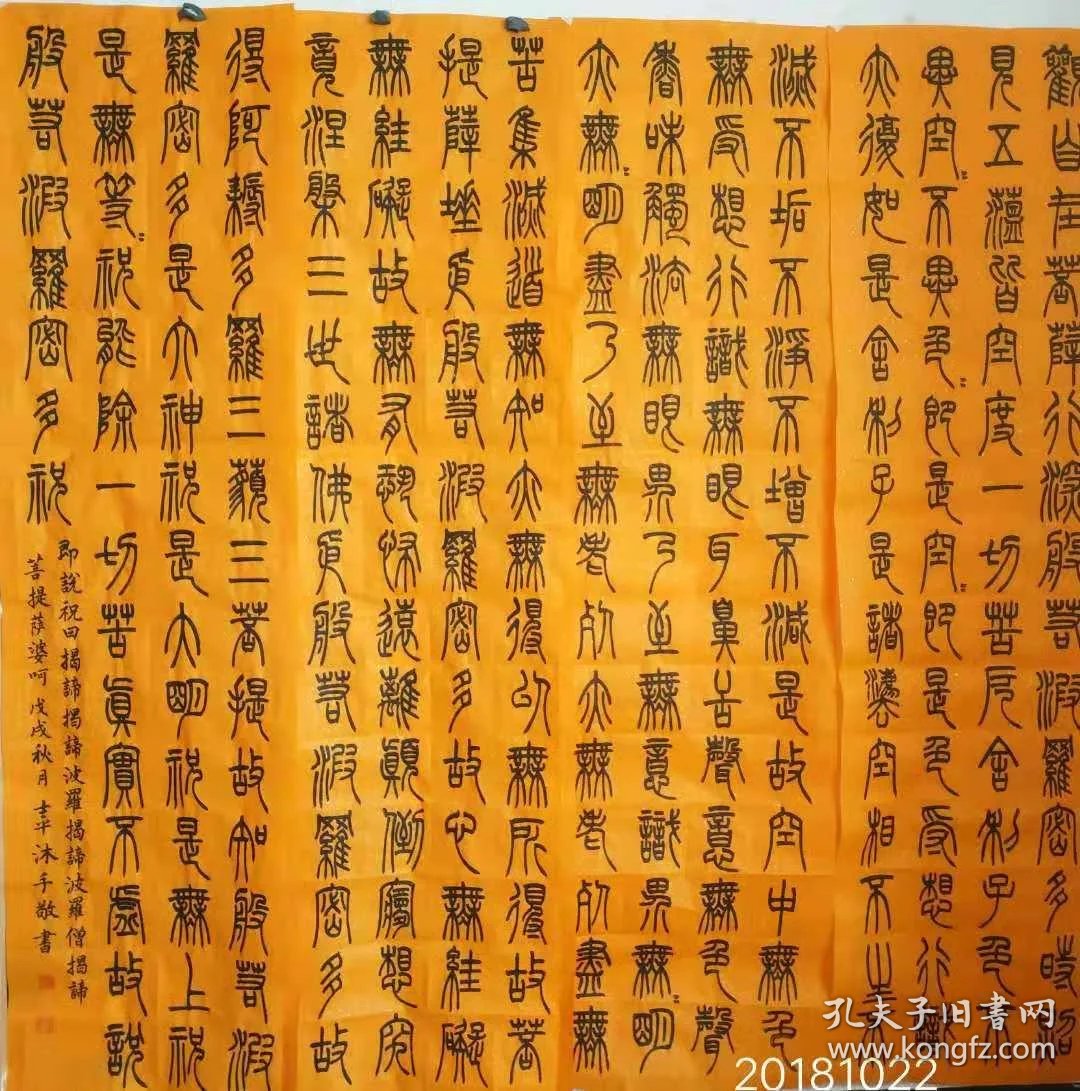 觀自在菩薩行深般若波羅密多時照
見五蘊皆空度一切苦厄舍利子色不
異空〻不異色〻即是空〻即是色受想行識
亦復如是舍利子是諸法空相不生不
滅不垢不淨不增不減是故空中無色
無受想行識無眼耳鼻舌聲意無色聲
香味觸法無眼界乃至無意識界無〻明
亦無〻明盡乃至無老死亦無老死盡無
苦集滅道無知亦無得以無所得故菩
提薩埵依般若波羅密多故心無罣礙
無罣礙故無有恐怖遠離顛倒夢想究
竟涅槃三世諸佛依般若波羅密多故
得阿耨多羅三藐三菩提故知般若波
羅密多是大神祝是大明祝是無上祝
是無等〻祝能除一切苦真實不虛故說
般若波羅密多祝
即說祝曰揭諦揭諦波羅揭諦波羅僧揭諦
菩提萨婆呵 戊戌秋月 沐手敬書
孔夫子旧书网
www.kongfz.com
20181022